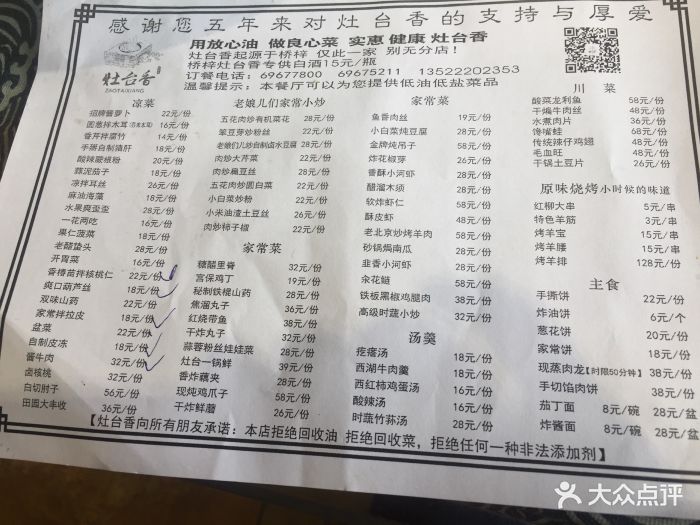 感谢您五年来对灶台香的支持与厚爱
用放心油 做良心菜 实惠 健康 灶台香
灶台香起源于桥梓 仅此一家 别无分店！
桥梓灶台香专供白酒15元/瓶
订餐电话：69677800 69675211 13522202353
温馨提示：本餐厅可以为您提供低油低盐菜品
灶台香
ZAOTAIXIANG
凉菜
招牌酱萝卜 22元/份
16元/份
香芹拌腐竹 14元/份
手掰自制猪肝 18元/份
酸辣蕨根粉 20元/份
蒜泥茄子 18元/份
凉拌耳丝 26元/份
麻油海藻 18元/份
水果爽歪歪 28元/份
一花两吃 16元/份
果仁菠菜 18元/份
老醋蛰头 28元/份
开胃菜 16元/份
香椿苗拌核桃仁 22元/份
爽口葫芦丝 18元/份
双味山药 22元/份
家常拌拉皮 18元/份
盆菜 22元/份
自制皮冻 18元/份
酱牛肉 32元/份
卤核桃 32元/份
白切肘子 56元/份
田园大丰收 36元/份
老娘儿们家常小炒
五花肉炒有机菜花 28元/份
笨豆芽炒粉丝 22元/份
老娘们儿炒自制卤水豆腐 28元/份
肉炒大芹菜 28元/份
肉炒扁豆丝 28元/份
五花肉炒圆白菜 26元/份
小白菜炒粉 22元/份
小米油渣土豆丝 22元/份
肉炒柿子椒 22元/份
家常菜
糖醋里脊 32元/份
宫保鸡丁 19元/份
秘制铁棍山药 28元/份
焦溜丸子 36元/份
红烧带鱼 38元/份
干炸丸子 32元/份
蒜蓉粉丝娃娃菜 28元/份
灶台一锅鲜 39元/份
香炸藕夹 28元/份
现炖鸡爪子 58元/份
干炸鲜蘑 26元/份
家常菜
鱼香肉丝 19元/份
小白菜炖豆腐 28元/份
金牌炖吊子 58元/份
炸花椒芽 26元/份
香酥小河虾 38元/份
醋溜木须 28元/份
软炸虾仁 58元/份
酥皮虾 48元/份
老北京炒烤羊肉 58元/份
砂锅焗南瓜 28元/份
韭香小河虾 38元/份
汆花鲢 58元/份
铁板黑椒鸡腿肉 38元/份
高级时蔬小炒 32元/份
汤羹
疙瘩汤 18元/份
西湖牛肉羹 18元/份
西红柿鸡蛋汤 16元/份
酸辣汤 16元/份
时蔬竹荪汤 28元/份
川菜
酸菜龙利鱼 58元/份
干煸牛肉丝 48元/份
水煮肉片 36元/份
馋嘴蛙 68元/份
传统辣仔鸡翅 48元/份
毛血旺 48元/份
干锅土豆片 26元/份
原味烧烤 小时候的味道
红柳大串 5元/串
特色羊筋 3元/串
烤羊宝 15元/串
烤羊腰 15元/串
烤羊排 128元/份
主食
手撕饼 22元/份
炸油饼 6元/个
葱花饼 20元/份
家常饼 18元/份
现蒸肉龙【时限50分钟】38元/份
手切馅肉饼 38元/份
茄丁面 8元/碗 28元/盆
炸酱面 8元/碗 28元/盆
【灶台香向所有朋友承诺：本店拒绝回收油 拒绝回收菜，拒绝任何一种非法添加剂】
大众点评